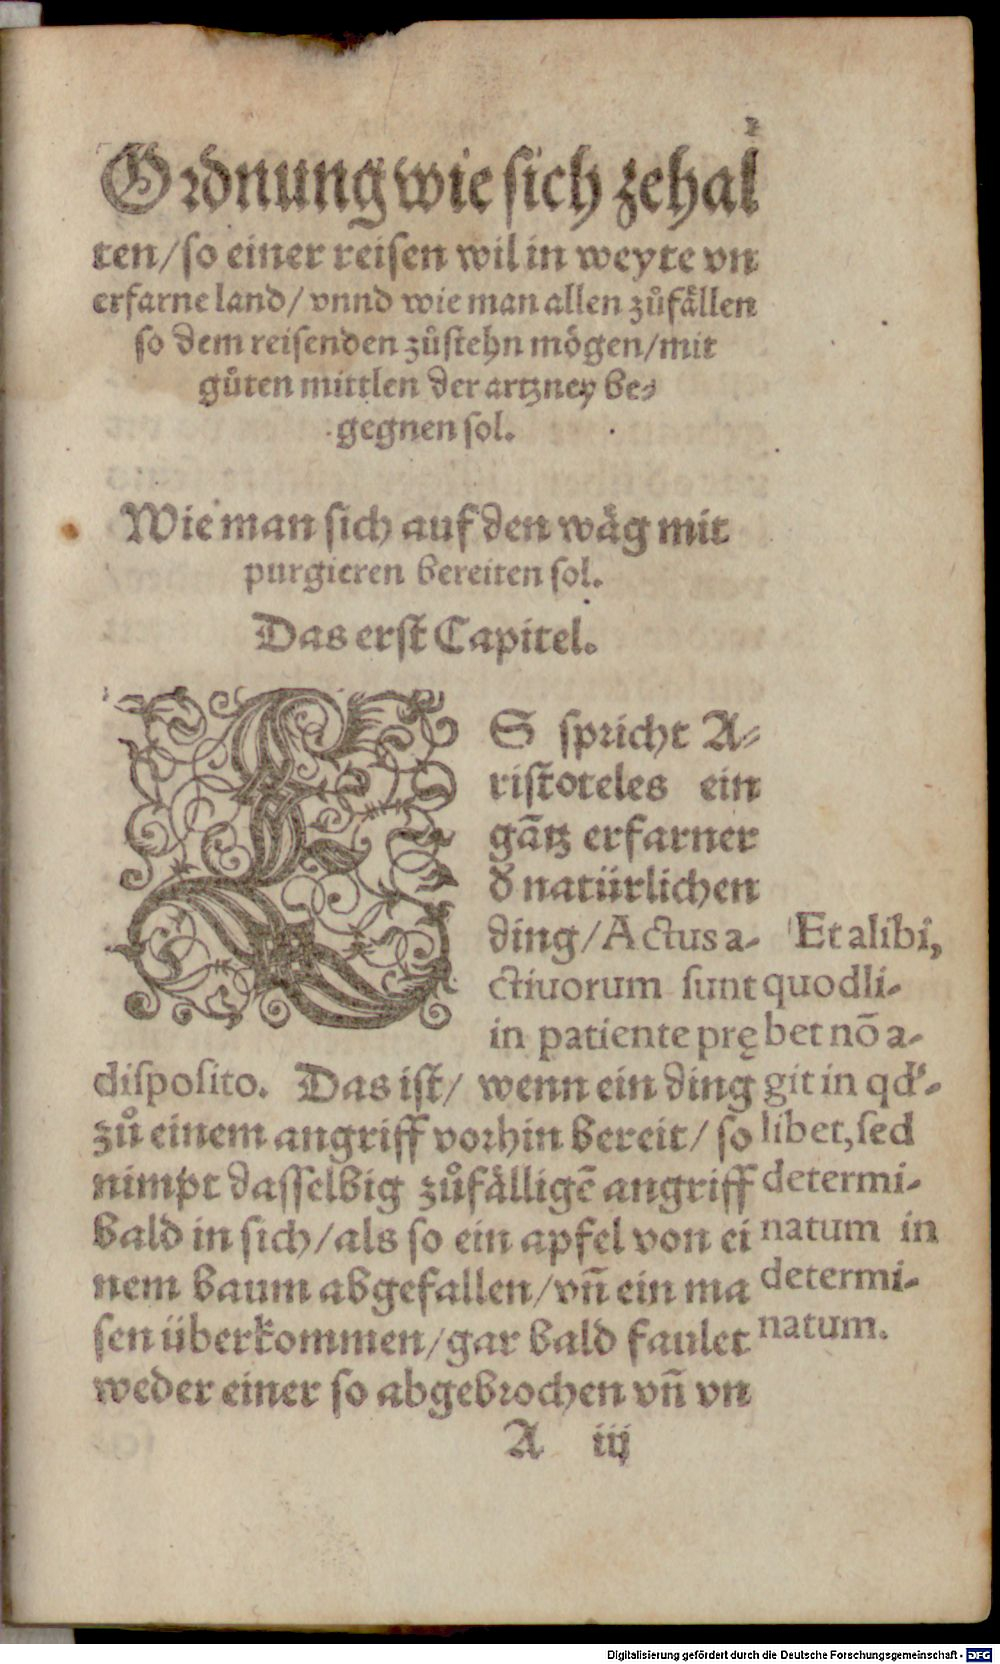 Ordnung wie sich zehal
ten/so einer reisen wil in weyte vn
erfarne land/ vnnd wie man allen zůfällen
so dem reisenden zůstehn mögen/mit
gůten mittlen der artzney be⸗
gegnen sol.
Wie man sich auf den wäg mit
purgieren bereiten sol.
Das erst Capitel.
ES spricht A⸗
ristoteles ein
gãtz erfarner
d' natürlichen
ding/Actus a-
ctiuorum sunt
in patiente prę
disposito. Das ist/ wenn ein ding
zů einem angriff vorhin bereit/ so
nimpt dasselbig zůfälligẽ angriff
bald in sich/als so ein apfel von ei
nem baum abgefallen/vñ ein ma
sen überkommen/gar bald faulet
weder einer so abgebrochen vñ vn
Et alibi,
quodli-
bet nõ a-
git in qd'-
libet, sed
determi-
natum in
determi-
natum.
A iij
Digitalisierung gefördert durch die Deutsche Forschungsgemeinschaft - DFG